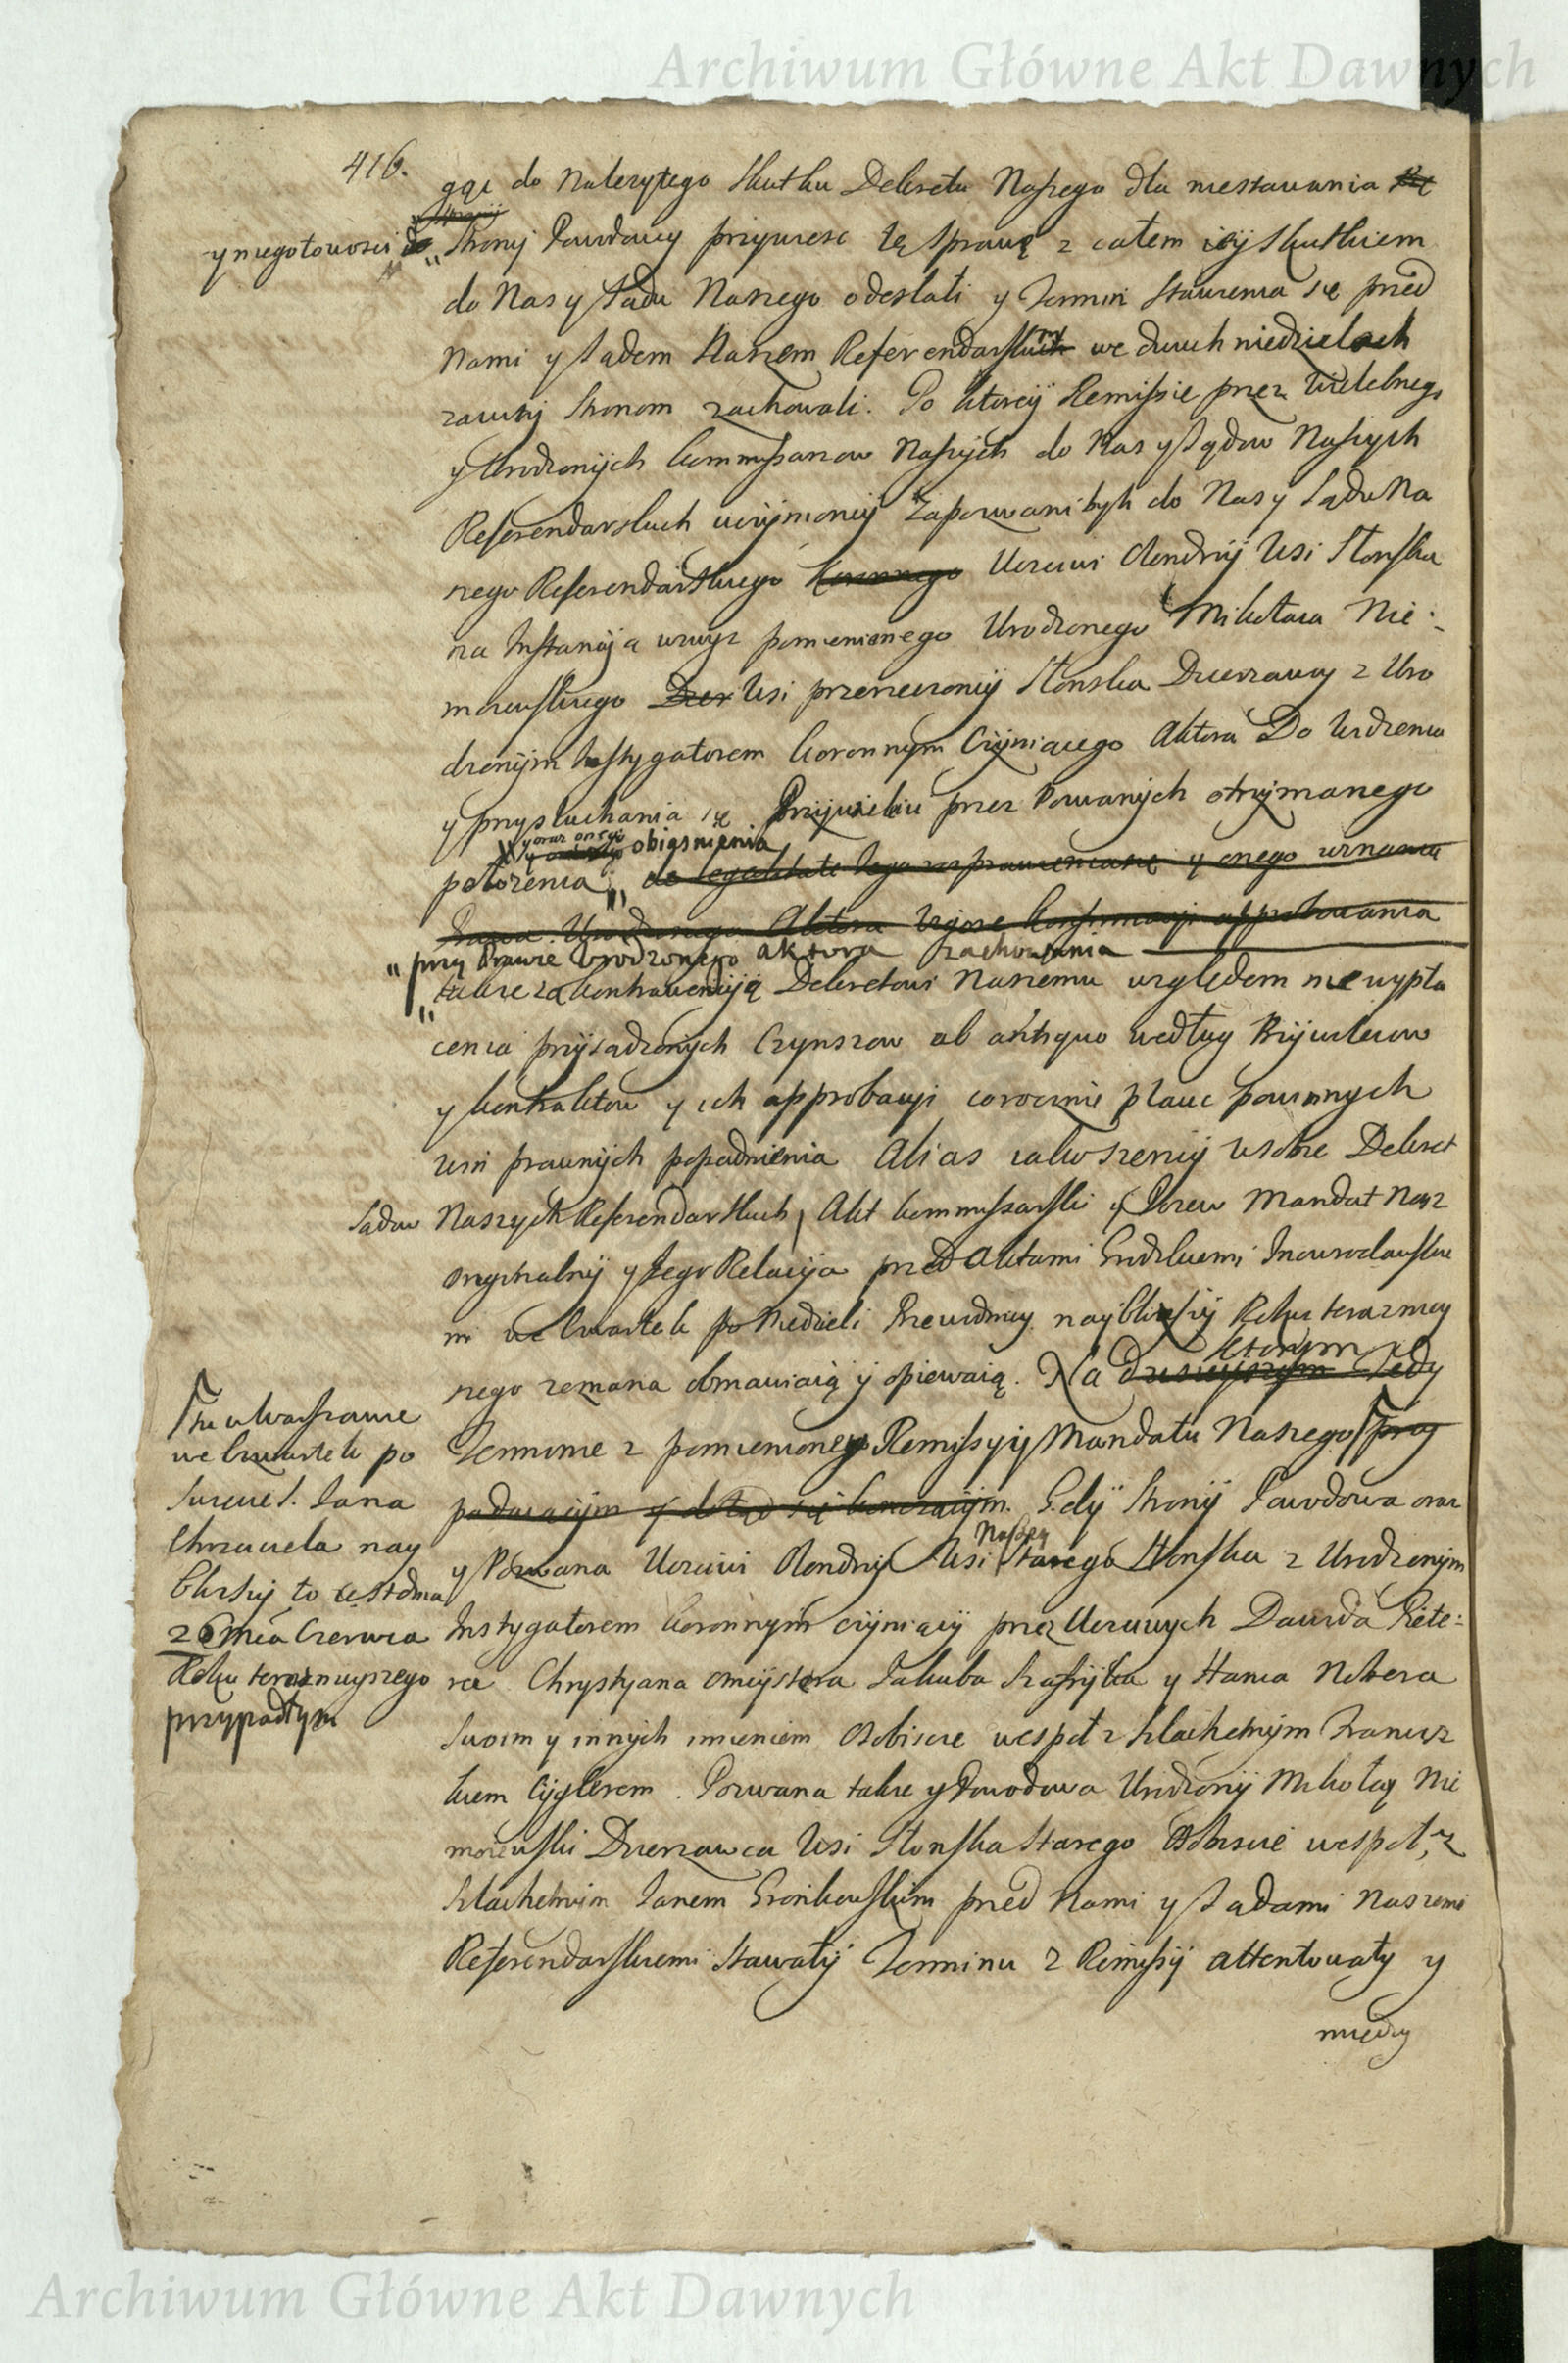 Archiwum Główne Akt Dawnych
416.
gąc do Należytego skutku Dekretu Naszego dla niestawania
y niegotowości
Strony Powodowey przywieść tę Sprawę z całem iey Skutkiem
do Nas y Sądu Naszego odesłali y Termin Stawienia się przed
Nami y Sądem Naszem Referendarskim we dwuch niedzielach
zawity Stronom zachowali. Po ktorey Remissie przez Wielebnego
y Urodzonych Kommissarzow Naszych do Nas y Sądow Naszych
Referendarskich uczynioney Zapozwani byli do Nas y Sądu Na
szego Referendarskiego Koronnego Uczciwi Olendrzy Wsi Słonska
na Instancyą wwyż pomienionego Urodzonego Mikołaia Nie:
moiewskiego Dzer Wsi przerzeczoney Słonska Dzierzawcy z Uro
dzonym Instygatorem Koronnym Czyniącego Aktora Do Widzenia
y przysłuchania się Przywileiu przez Pozwanych otrzymanego
y oraz onego obiaśnienia
położenia de legalitate tego rozprawienia się y onego uznania
Prawa Urodzonego Aktora Vigore Konfirmacyi approbowania
przy Prawie Urodzonego aktora zachowania
także za kontrawencyią Dekretowi Naszemu względem niewypła
cenia przysądzonych Czynszow ab antiquo według Przywileiow
y Kontraktow y ich approbacyi corocznie płacić powinnych
win prawnych popadnienia Alias iako szerzey w sobie Dekret
Sądow Naszych Referendarskich, Akt Kommissarski y Pozew Mandat Nasz
oryginalny y Jego Relacya przed Aktami Grodzkiemi Inowrocławskie
mi we Czwartek po Niedzieli Przewodniey naybliższy Roku terazniey
szego zeznana obmawiaią y opiewaią. Na dzisieyszym Tedy
ktorym
Terminie z pomienioney Remissyi y Mandatu Naszego przy
padaiącym y dotąd się kończącym. Gdy Strony Powodowa oraz
y Pozwana Uczciwi Olendrzy Wsi Naszey Starego Słonska z Urodzonym
Instygatorem Koronnym czyniący przez Uczciwych Dawida Pete:
ra Chrystyana Jakuba y Hansa
Swoim y innych imieniem Osobiscie wespoł z Szlachetnym Francisz
kiem Cyglerem. Pozwana także y Powodowa Urodzony Mikołay Nie
moiewski Dzierzawca Wsi Słonska Starego Osobiscie wespoł z
Szlachetnym Janem Gronkowskim przed Nami y Sądami Naszemi
Referendarskiemi Stawały Terminu z Remissyi attentowały y
między
tu w Warszawie
we Czwartek po
Swięcie S. Jana
Chrzciciela nay
bliższy to iest dnia
26 Mca Czerwca
Roku teraznieyszego
przypadłym
Archiwum Główne Akt Dawnych